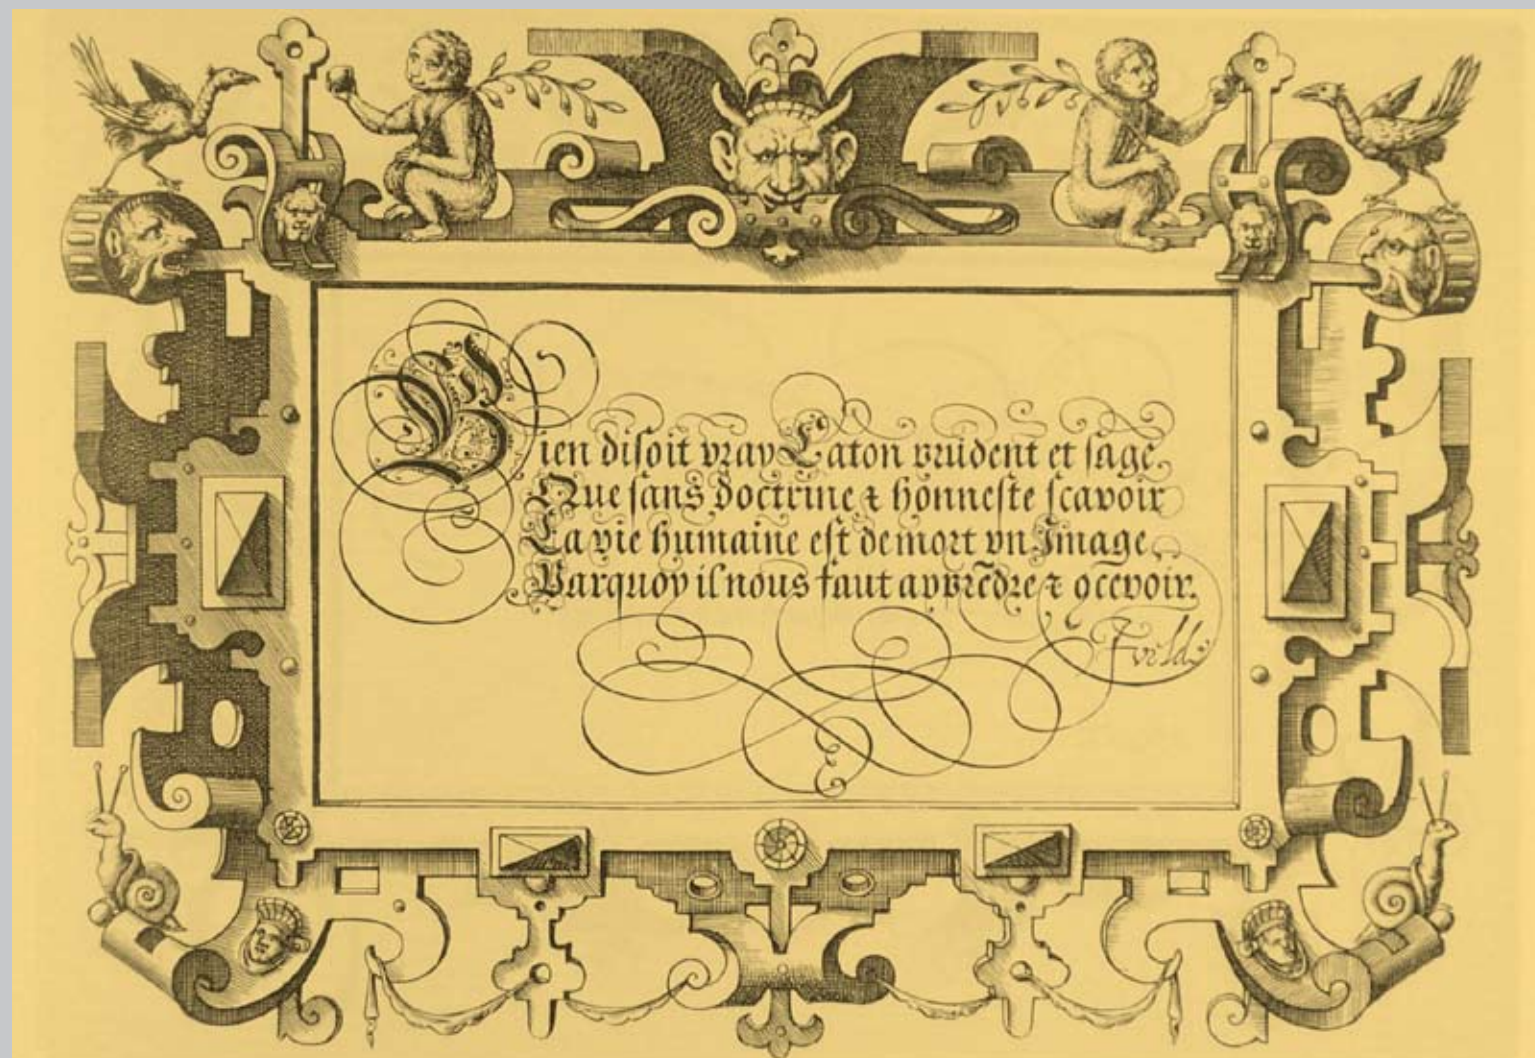 Bien diſoit vray Caton prudent et ſage,
Que ſans doctrine & honneſte ſcavoir
La vie humaine eſt de mort vn Image,
Parquoy il nous faut apprẽdre &